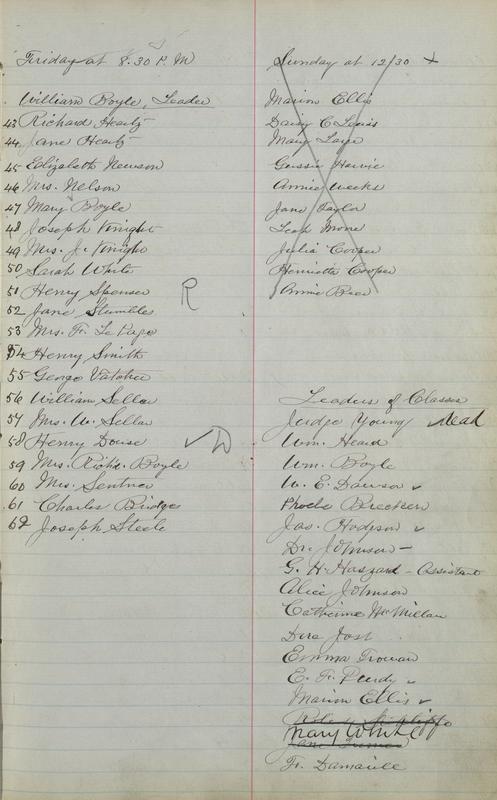 Friday at 8.30 P.M
William Boyle, Leader
43 Richard Heartz
44 Jane Heartz
45 Elizabeth Newson
46 Mrs. Nelson
47 Mary Boyle
48 Joseph Knight
49 Mrs. J. Knight
50 Sarah White
51 Henry Spenser R
52 Jane Stumbles
53 Mrs. Fr. Le Page
54 Henry Smith
55 George
56 William Sellar
57 Mrs. W. Sellar
58 Henry Douse ✓ D
59 Mrs. Richd. Boyle
60 Mrs. Sentner
61 Charles Bridges
62 Joseph Steele
Sunday at 12/30 +
Marion Ellis
Daisy C Lewis
Mary
Gussie Harvie
Annie Weeks
Jane Taylor
Leah More
Julia Cooper
Henrietta Cooper
Annie
Leaders of Classes
Judge Young dead
Wm. Heard
Wm. Boyle
W. E. Dawson ✓
Phoebe Brecken
Jas. Hodgson ✓
Dr. Johnson –
G. H. Haszard – Assistant
Alice Johnson
Catherine McMillan
Dora Jost
Emma Trowan
E. Fr. Purdy ✓
Marion Ellis ✓
Mary White
Fr.